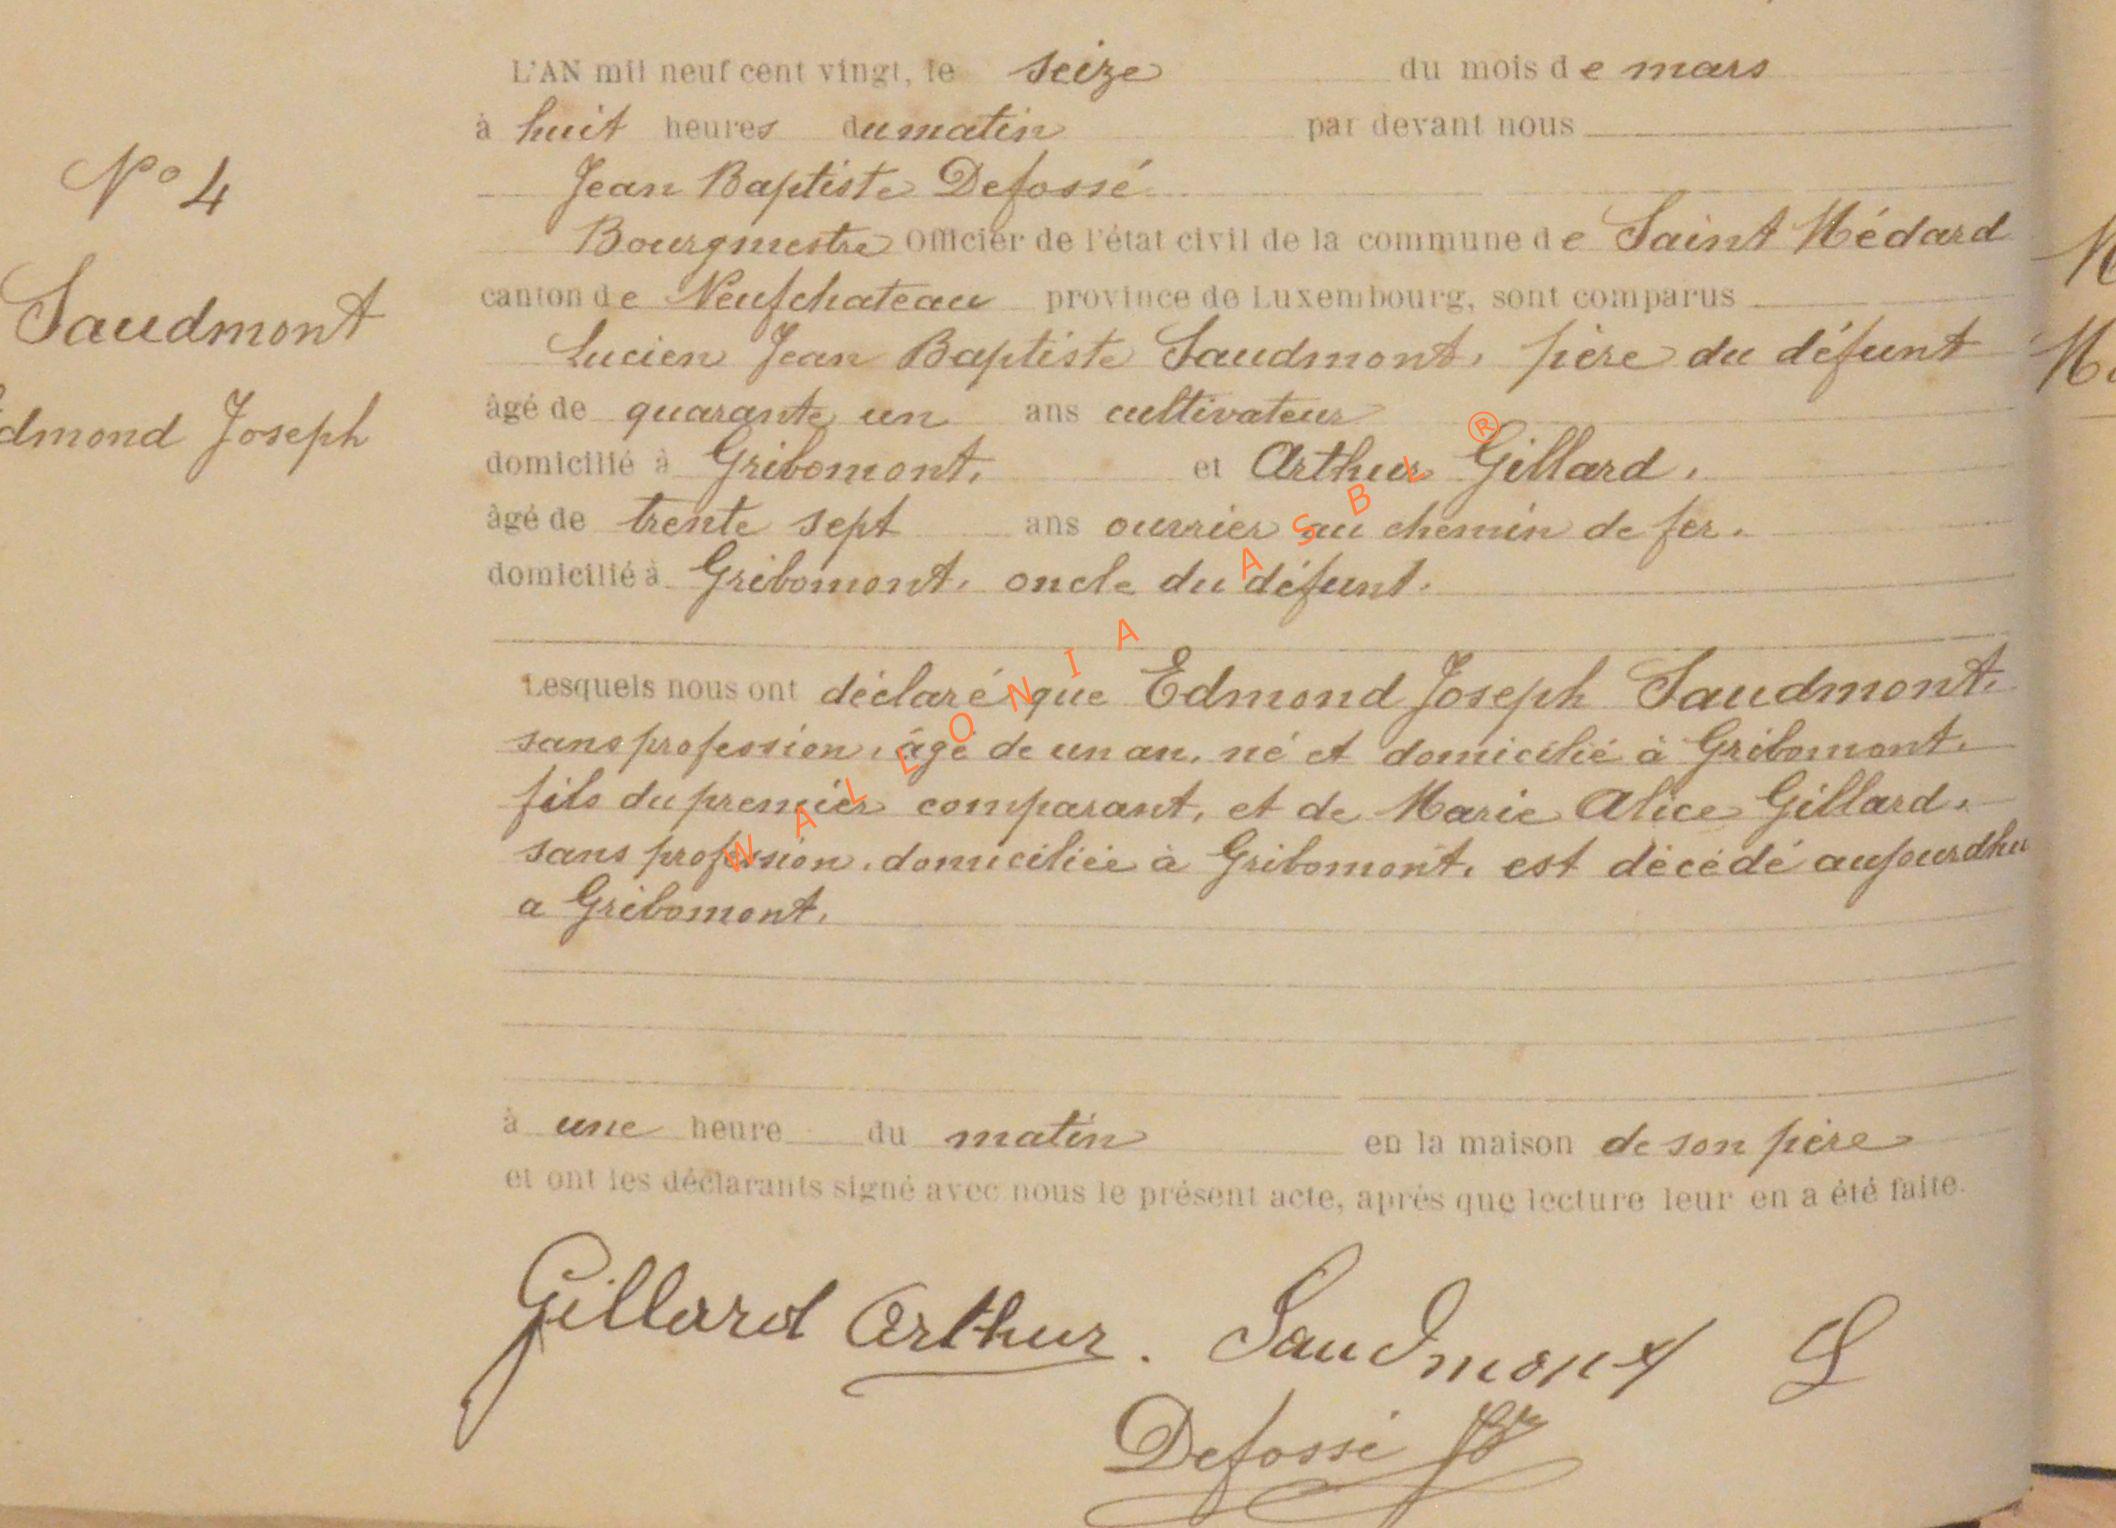 N° 4
Saudmont
Edmond Joseph
L'AN mil neuf cent vingt, le seize du mois de mars
à huit heures du matin par devant nous
Jean Baptiste Defossé
Bourgmestre Officier de l'état civil de la commune de Saint Médard
canton de Neufchateau province de Luxembourg, sont comparus
Lucien Jean Baptiste Saudmont, père du défunt
âgé de quarante un ans cultivateur
domicilié à Gribomont, et Arthur Gillard,
âgé de trente sept ans ouvrier au chemin de fer,
domicilié à Gribomont, oncle du défunt.
Lesquels nous ont déclaré que Edmond Joseph Saudmont,
sans profession, âgé de un an, né et domicilié à Gribomont,
fils du premier comparant, et de Marie Alice Gillard,
sans profession, domiciliée à Gribomont, est décédé aujourdhu
a Gribomont,
à une heure du matin en la maison de son père
et ont les déclarants signé avec nous le présent acte, après que lecture leur en a été faite.
Gillard Arthur. Saudmont L
Defossé JB
WALLONIA ASBL ®